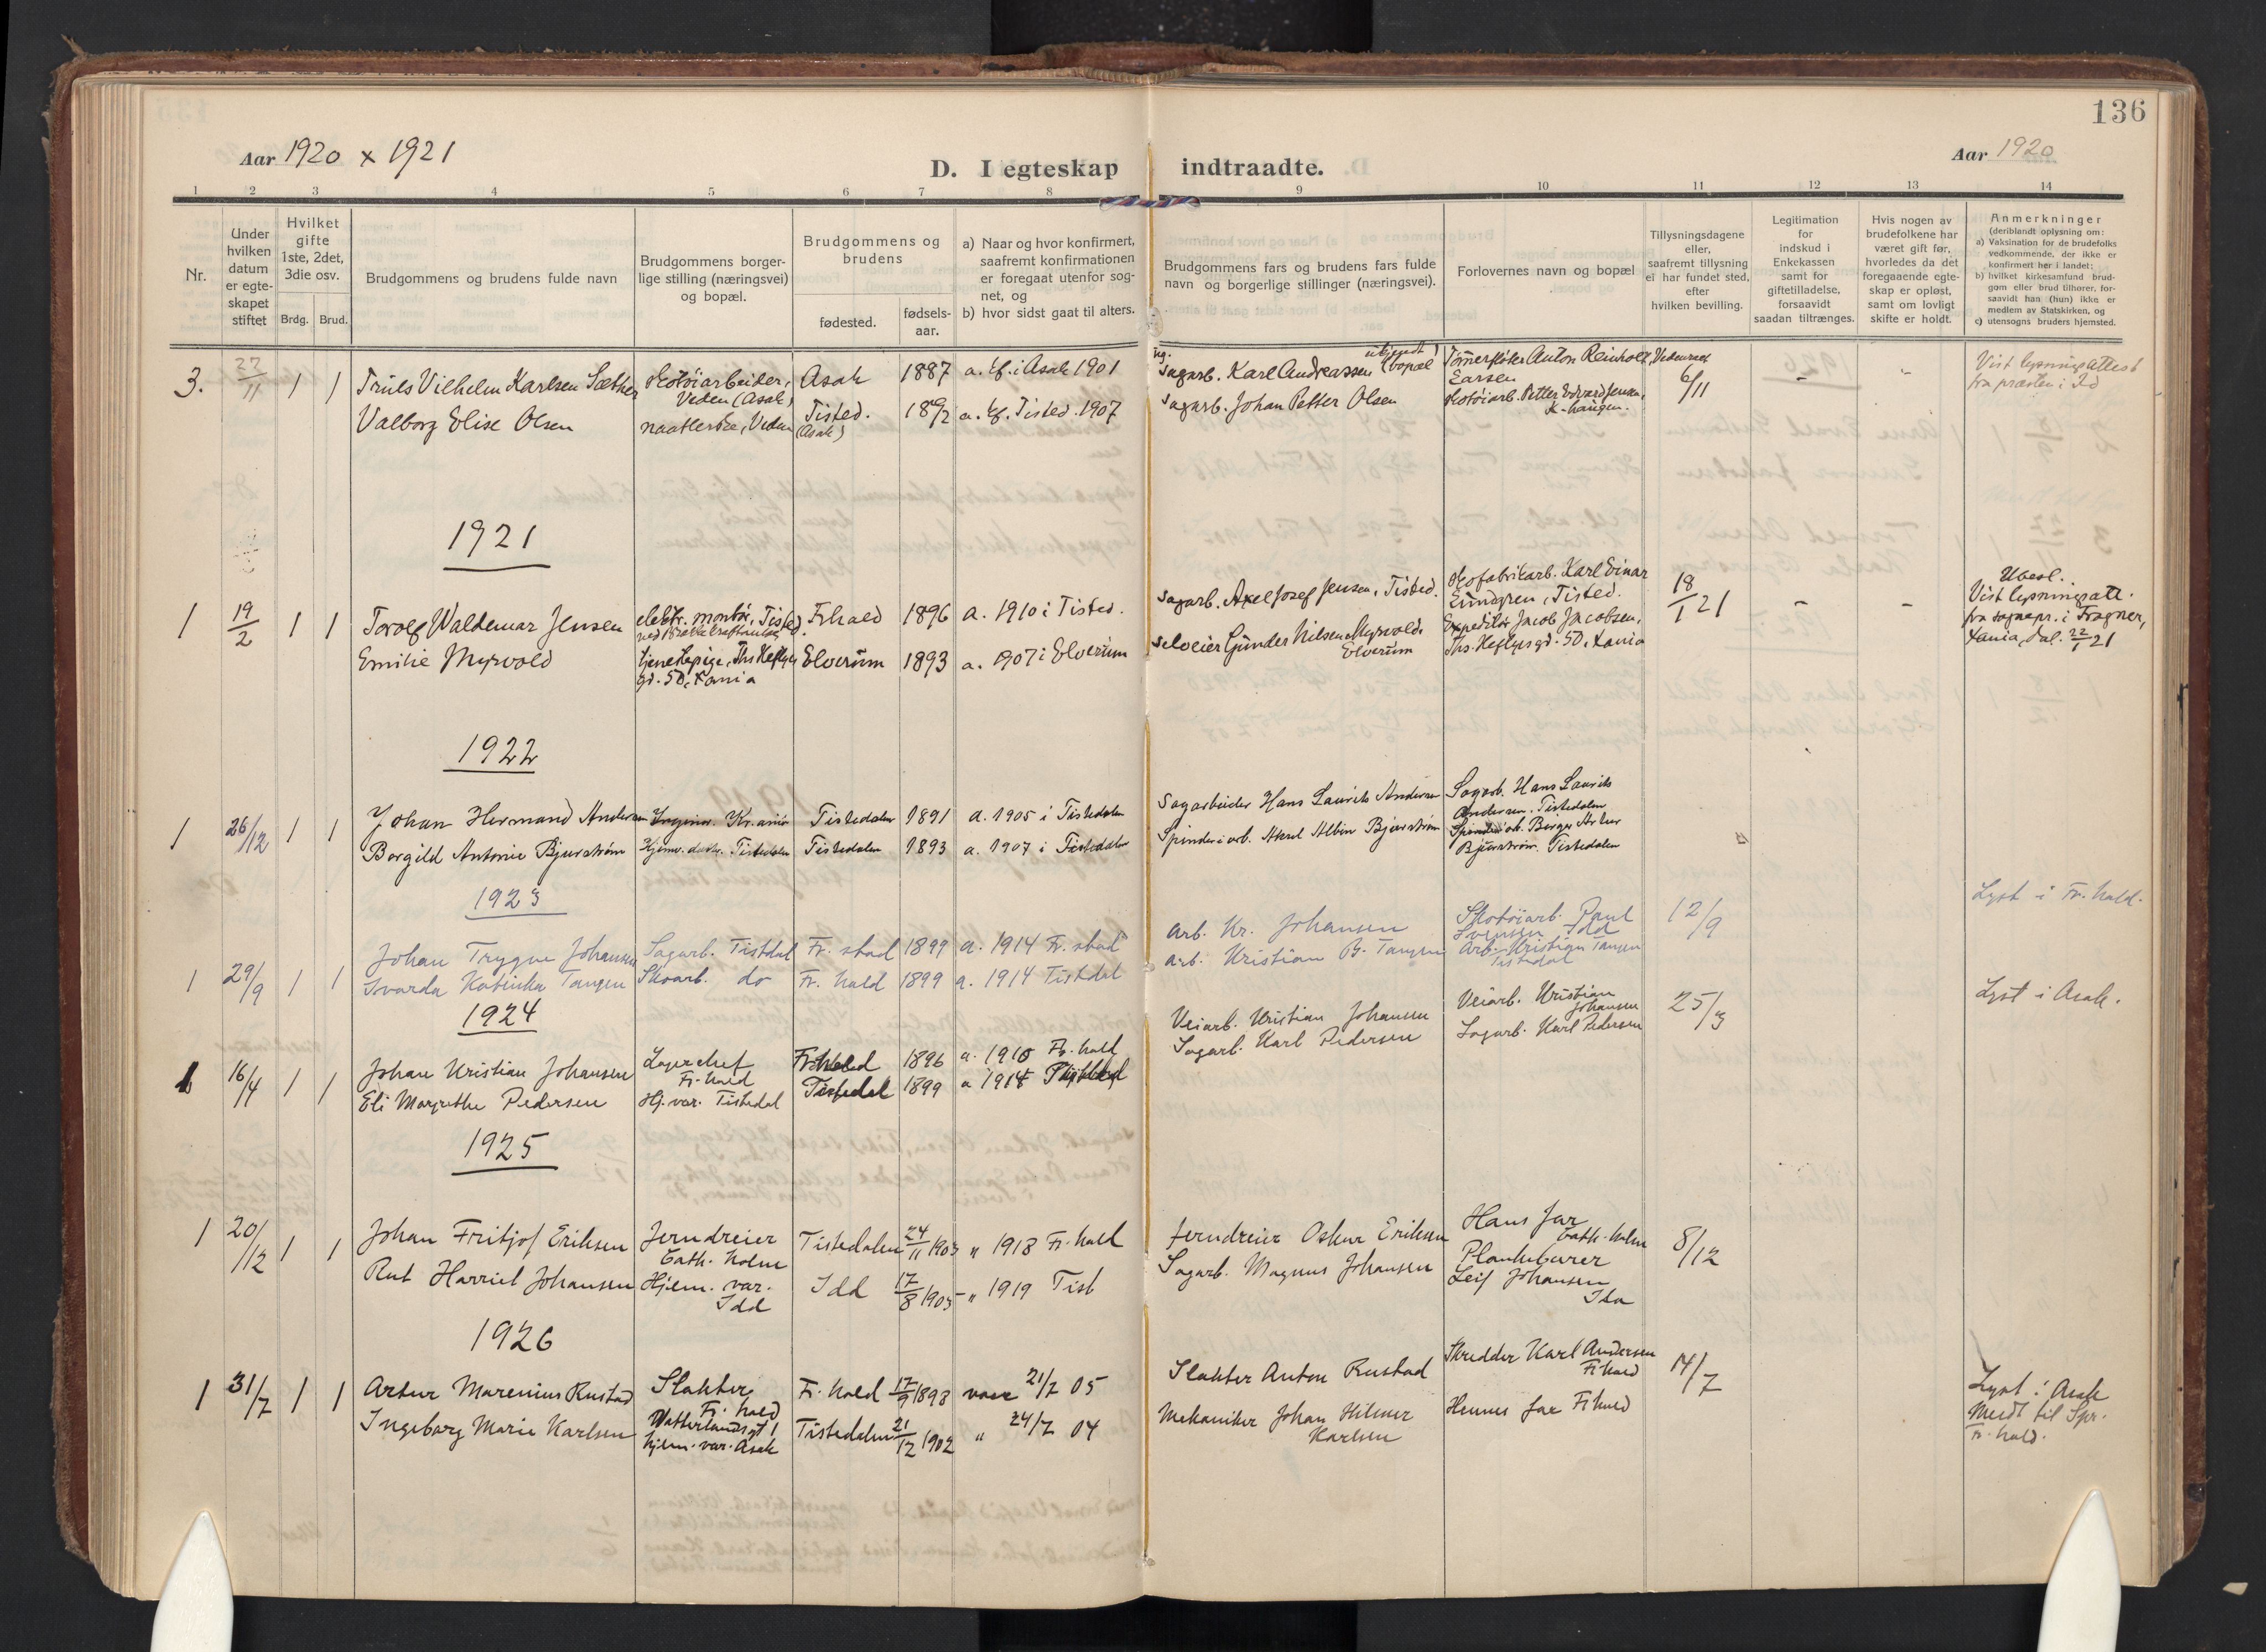 136
Aar 1920 x 1921
D. I egteskap indtraadte.
Aar 1920
1 2 3 4 5 6 7 8 9 10 11 12 13 14
Nr.
Under hvilken datum er egte-skapet stiftet
Hvilket gifte 1ste, 2det, 3die osv.
Brdg. Brud.
Brudgommens og brudens fulde navn
Brudgommens borger-lige stilling (næringsvei) og bopæl.
Brudgommens og brudens
fødested.
fødsels-aar.
a) Naar og hvor konfirmert, saafremt konfirmationen er foregaat utenfor sog-net, og
b) hvor sidst gaat til alters.
Brudgommens fars og brudens fars fulde navn og borgerlige stillinger (næringsvei).
Forlovernes navn og bopæl
Tillysningsdagene eller, saafremt tillysning ei har fundet sted, efter hvilken bevilling.
Legitimation for indskud i Enkekassen samt for giftetilladelse, forsaavidt saadan tiltrænges.
Hvis nogen av brudefolkene har været gift før, hvorledes da det foregaaende egte-skap er opløst, samt om lovligt skifte er holdt.
Anmerkninger
(deriblandt oplysning om:
a) Vaksination for de brudefolks vedkommende, der ikke er konfirmert her i landet;
b) hvilket kirkesamfund brud-gom eller brud tilhører, for-saavidt han (hun) ikke er medlem av Statskirken, og
c) utensogns bruders hjemsted.
3. 27/11 1 1 Truls Vilhelm Karlsen Sæther Skotøiarbeider, Veden (Asak) Asak 1887 a. kf. i Asak 1901 Sagarb. Karl Andreassen (ubekjendt bopæl) Tømmerfløter Anton Reinholt Larsen Veden 6/11 - - Vist lysningsattest fra præsten i Id
Valborg Elise Olsen Veden Tisted. (Asak) 1892 a. kf. Tisted. 1907 Sagarb. Johan Petter Olsen Skotøiarb. Petter Edvard Jensen, K-haugen.
1921
1 19/2 1 1 Torolf Waldemar Jensen elektr. montør, Tisted. F.hald 1896 a. 1910 i Tisted. Sagarb. Axel Josef Jensen, Tisted. Skofabrikarb. Karl Einar Lundgren, Tisted. 18/1 21 - - Ubesl. Vist lysningsatt. fra sognepr. i Fragner, Kania, dat. 22/1 21
Emilie Myrvold tjenestepige, Ths Heftyes gd. 50, Kania Elverum 1893 a. 1907 i Elverum Selveier Gunder Nilsen Myrvold, Elverum Expeditør Jacob Jacobsen, Ths. Heftyesgd. 50, Kania
1922
1 26/12 1 1 Johan Hermand Andersen Ingeniør. Kr.ania Tistedalen 1891 a. 1905 i Tistedalen Sagarbeider Hans Laurits Andersen Sagarb. Hans Laurits Andersen. Tistedalen
Borgild Antonie Bjurstrøm Hjemv. datter. Tistedalen Tistedalen 1893 a. 1907 i Tistedalen Spinderiarb. Aksel Albin Bjurstrøm Spinderiarb. Birger Artur Bjurstrøm. Tistedalen
1923
1 29/9 1 1 Johan Trygve Johansen Sagarb. Tistdal Fr. stad 1899 a. 1914 Fr. stad Arb. Kr. Johansen Skotøiarb. Paul Svensen Idd 12/9 Lyst i Fr. hald.
Svarda Katinka Tangen Skoarb. do Fr. hald 1899 a. 1914 Tistdal Arb. Kristian B. Tangen Arb. Kristian Tangen Tistedal
1924
1 16/4 1 1 Johan Kristian Johansen Lagerchef Fr. hald Fr. hald 1896 a. 1910 Fr. hald Veiarb. Kristian Johansen Veiarb. Kristian Johansen 25/3 Lyst i Asak.
Eli Margrethe Pedersen Hj. var. Tistedal Tistedal 1899 a 1914 Sagarb. Karl Pedersen Sagarb. Karl Pedersen
1925
1 20/12 1 1 Johan Fritjof Eriksen Jerndreier Cath. holm Tistedalen 24/11 1903 " 1918 Fr. hald Jerndreier Oskar Eriksen Hans far Cath. holm 8/12
Rut Harriet Johansen Hjem. var. Idd Idd 17/8 1905 " 1919 Tist Sagarb. Magnus Johansen Plankebærer Leif Johansen
1926
1 31/7 1 1 Artur Marenius Rustad Slakter Fr. hald Fr. hald 17/9 1898 vacc 21/7 05 Slakter Anton Rustad Skredder Karl Andersen Fr hald 14/7 Lyst i Asak Meldt til Spr. Fr. hald.
Ingeborg Marie Karlsen hjem. var. Asak Tistedalen 21/12 1902 " 24/7 04 Mekaniker Johan Hilmer Karlsen Hennes far Fr hald